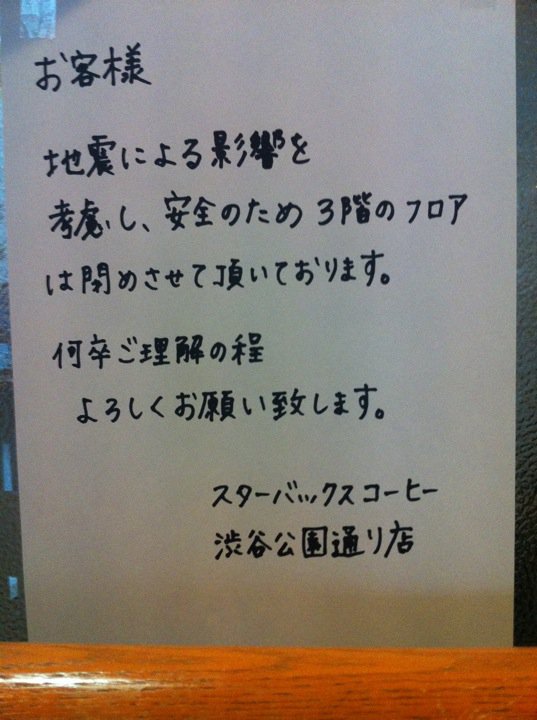 お客様
地震による影響を
考慮し、安全のため3階のフロア
は閉めさせて頂いております。
何卒ご理解の程
よろしくお願い致します。
スターバックスコーヒー
渋谷公園通り店